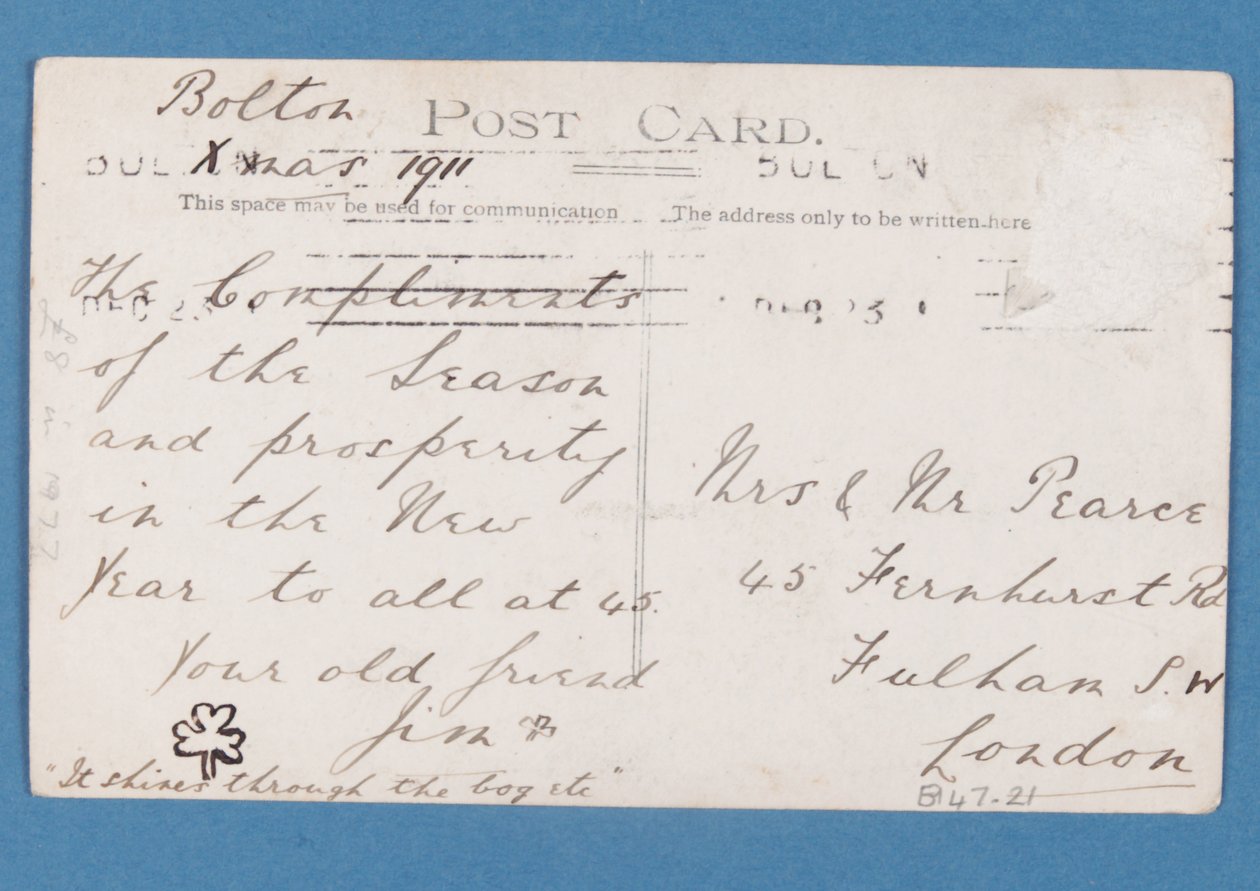 Bolton
POST CARD.
Xmas 1911
BOLTON
BOLTON
This space may be used for communication
The address only to be written here
The Compliments
DEC 23
DEC 23
of the Season
and prosperity
in the New
Year to all at 45.
Your old friend
Jim
"It shines through the bog etc"
Mrs & Mr Pearce
45 Fernhurst Rd
Fulham S.W
London
47.21